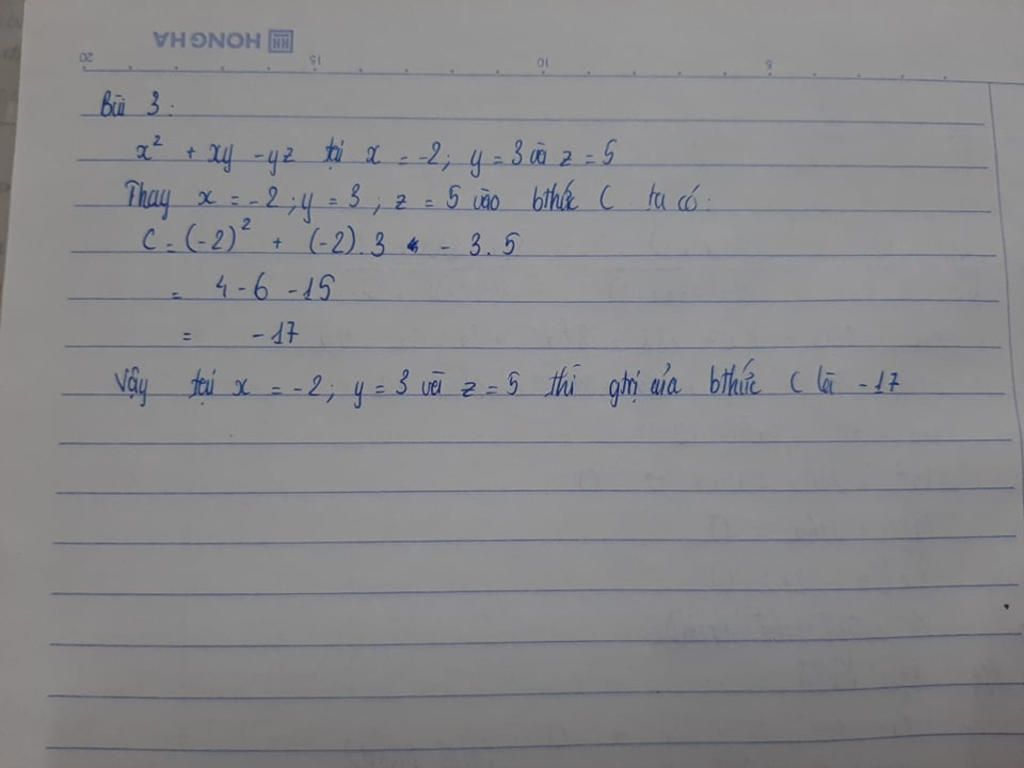 HH HONG HA
20 15 10 5
Bài 3:
x² + xy - yz tại x = -2; y = 3 và z = 5
Thay x = -2; y = 3; z = 5 vào bthức C ta có:
C = (-2)² + (-2).3 - 3.5
= 4 - 6 - 15
= -17
Vậy tại x = -2; y = 3 và z = 5 thì gtrị của bthức C là -17